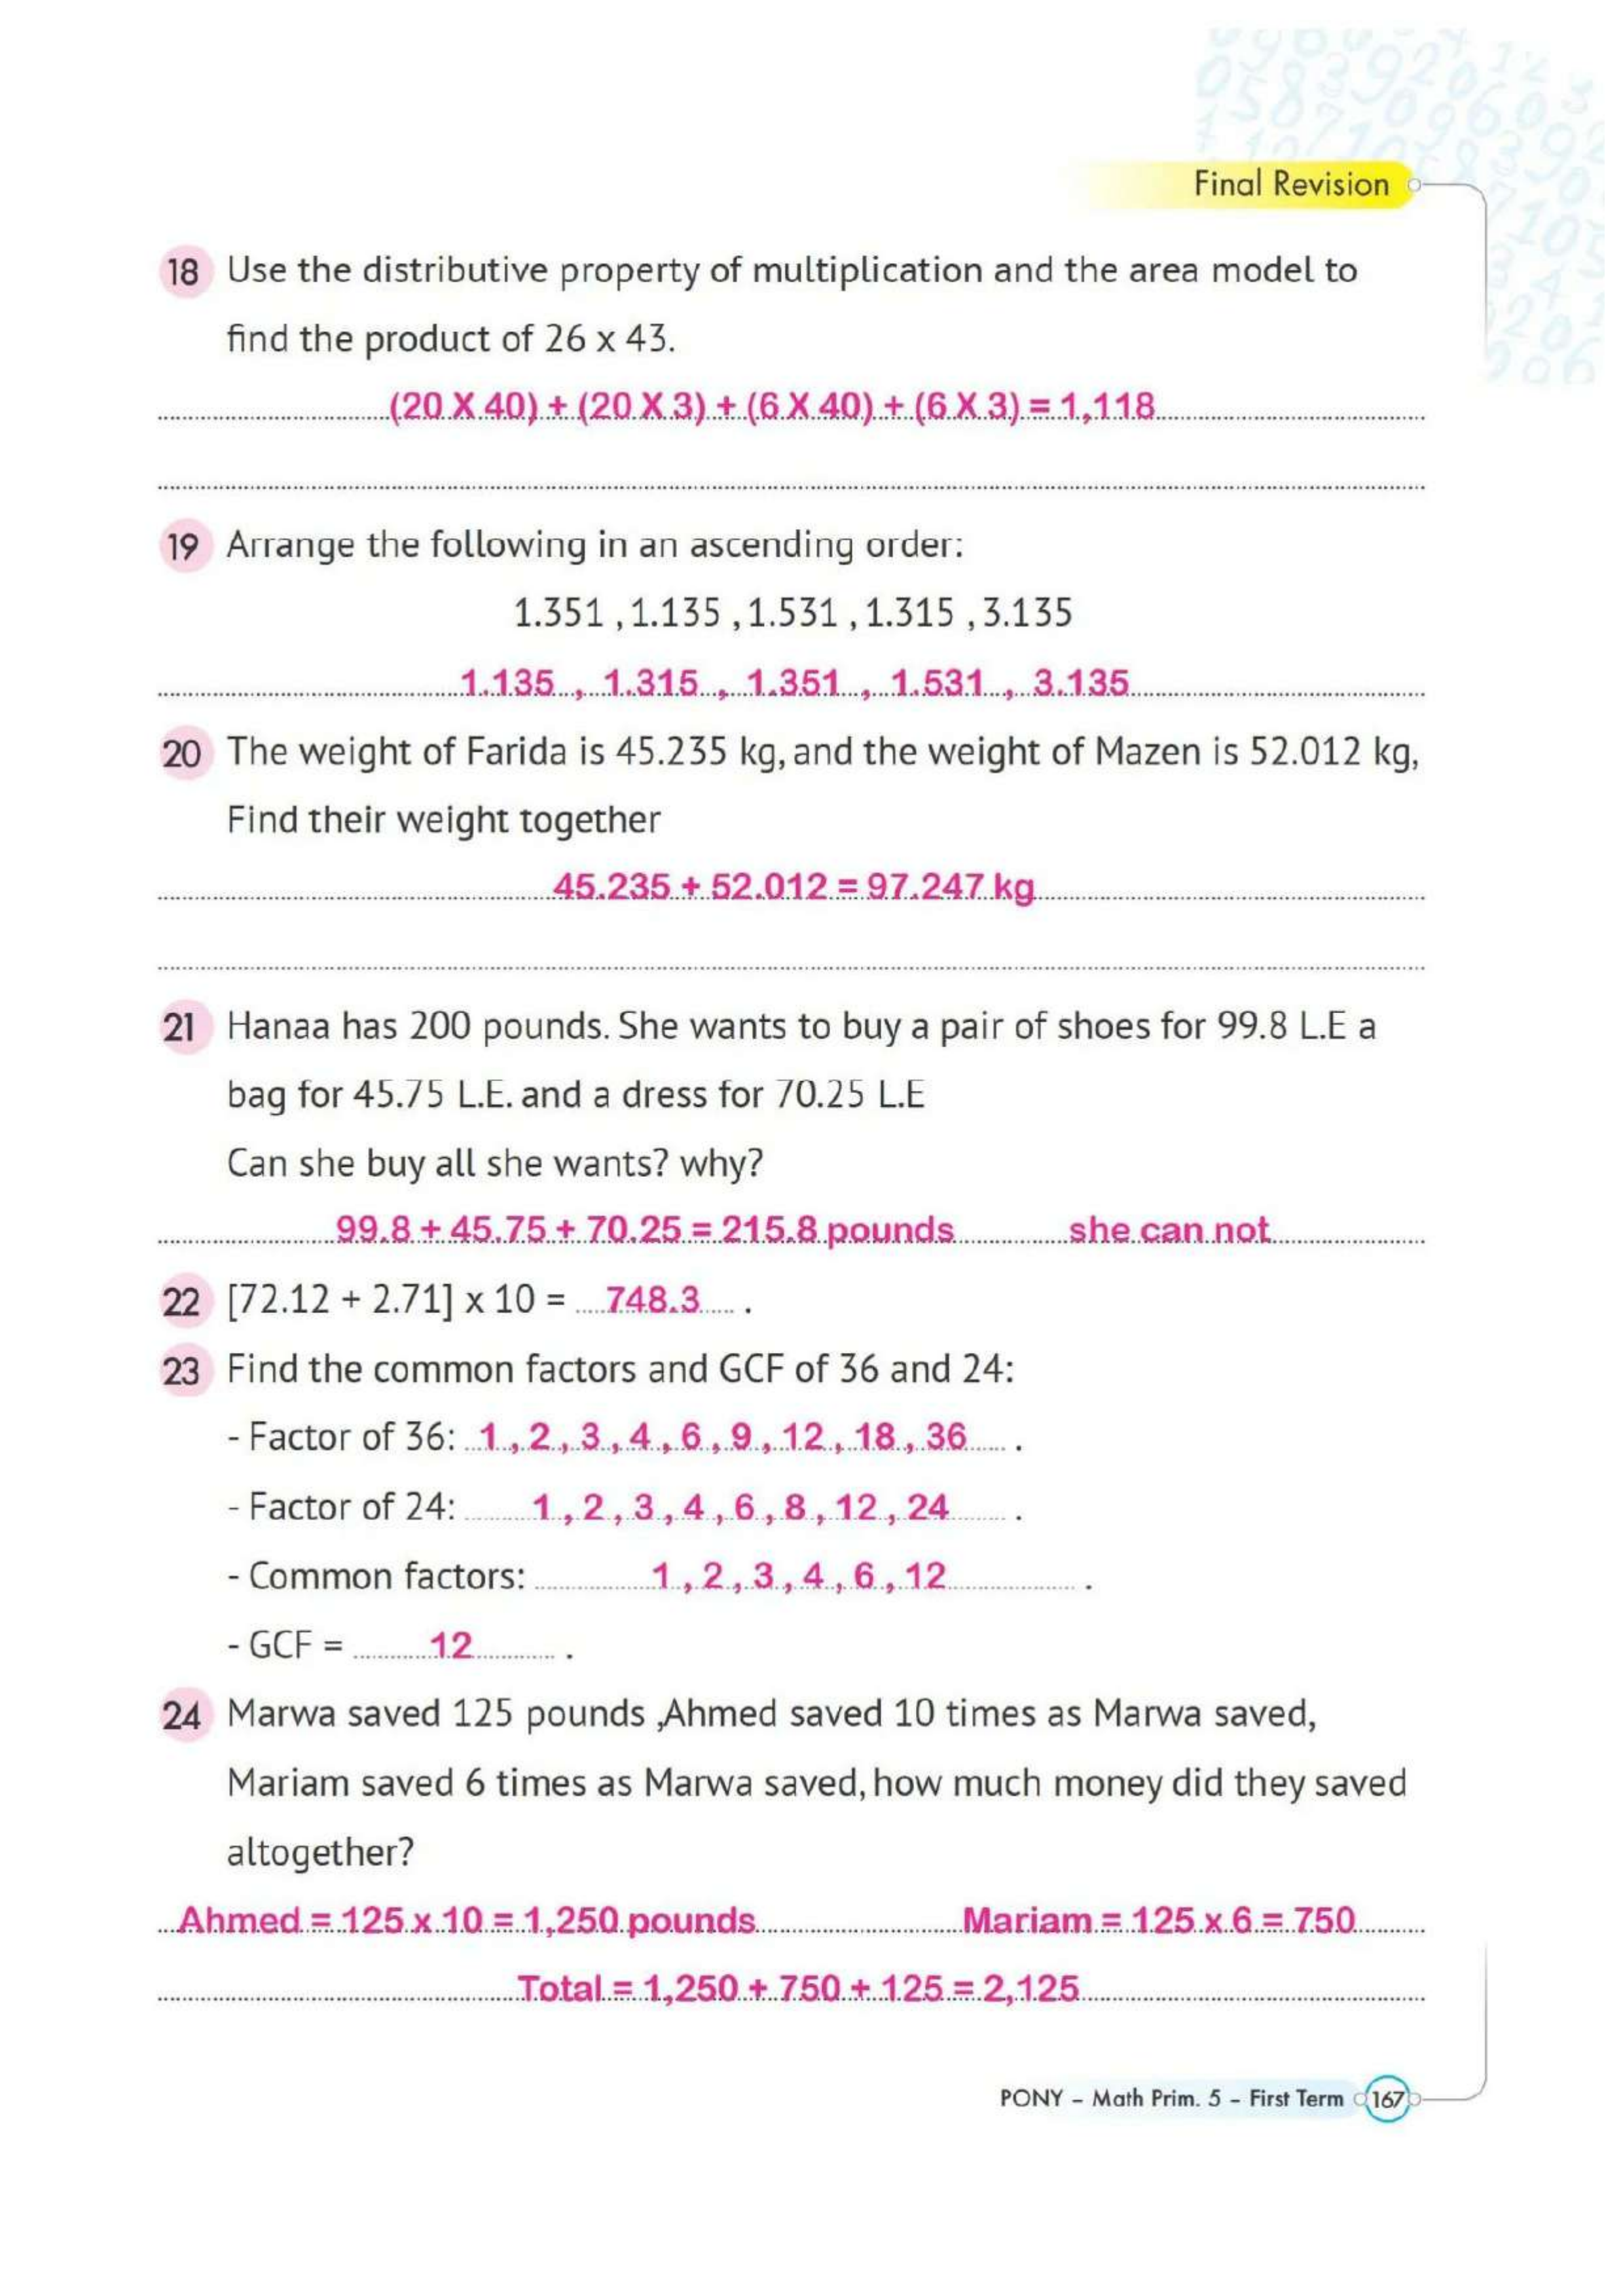 Final Revision
18 Use the distributive property of multiplication and the area model to
find the product of 26 x 43.
(20 X 40) + (20 X 3) + (6 X 40) + (6 X 3) = 1,118
19 Arrange the following in an ascending order:
1.351 , 1.135 , 1.531 , 1.315 , 3.135
1.135 , 1.315 , 1.351 , 1.531 , 3.135
20 The weight of Farida is 45.235 kg, and the weight of Mazen is 52.012 kg,
Find their weight together
45.235 + 52.012 = 97.247 kg
21 Hanaa has 200 pounds. She wants to buy a pair of shoes for 99.8 L.E a
bag for 45.75 L.E. and a dress for 70.25 L.E
Can she buy all she wants? why?
99.8 + 45.75 + 70.25 = 215.8 pounds she can not
22 [72.12 + 2.71] x 10 = 748.3 .
23 Find the common factors and GCF of 36 and 24:
- Factor of 36: 1 , 2 , 3 , 4 , 6 , 9 , 12 , 18 , 36 .
- Factor of 24: 1 , 2 , 3 , 4 , 6 , 8 , 12 , 24 .
- Common factors: 1 , 2 , 3 , 4 , 6 , 12 .
- GCF = 12 .
24 Marwa saved 125 pounds ,Ahmed saved 10 times as Marwa saved,
Mariam saved 6 times as Marwa saved, how much money did they saved
altogether?
Ahmed = 125 x 10 = 1,250 pounds Mariam = 125 x 6 = 750
Total = 1,250 + 750 + 125 = 2,125
PONY - Math Prim. 5 - First Term 167